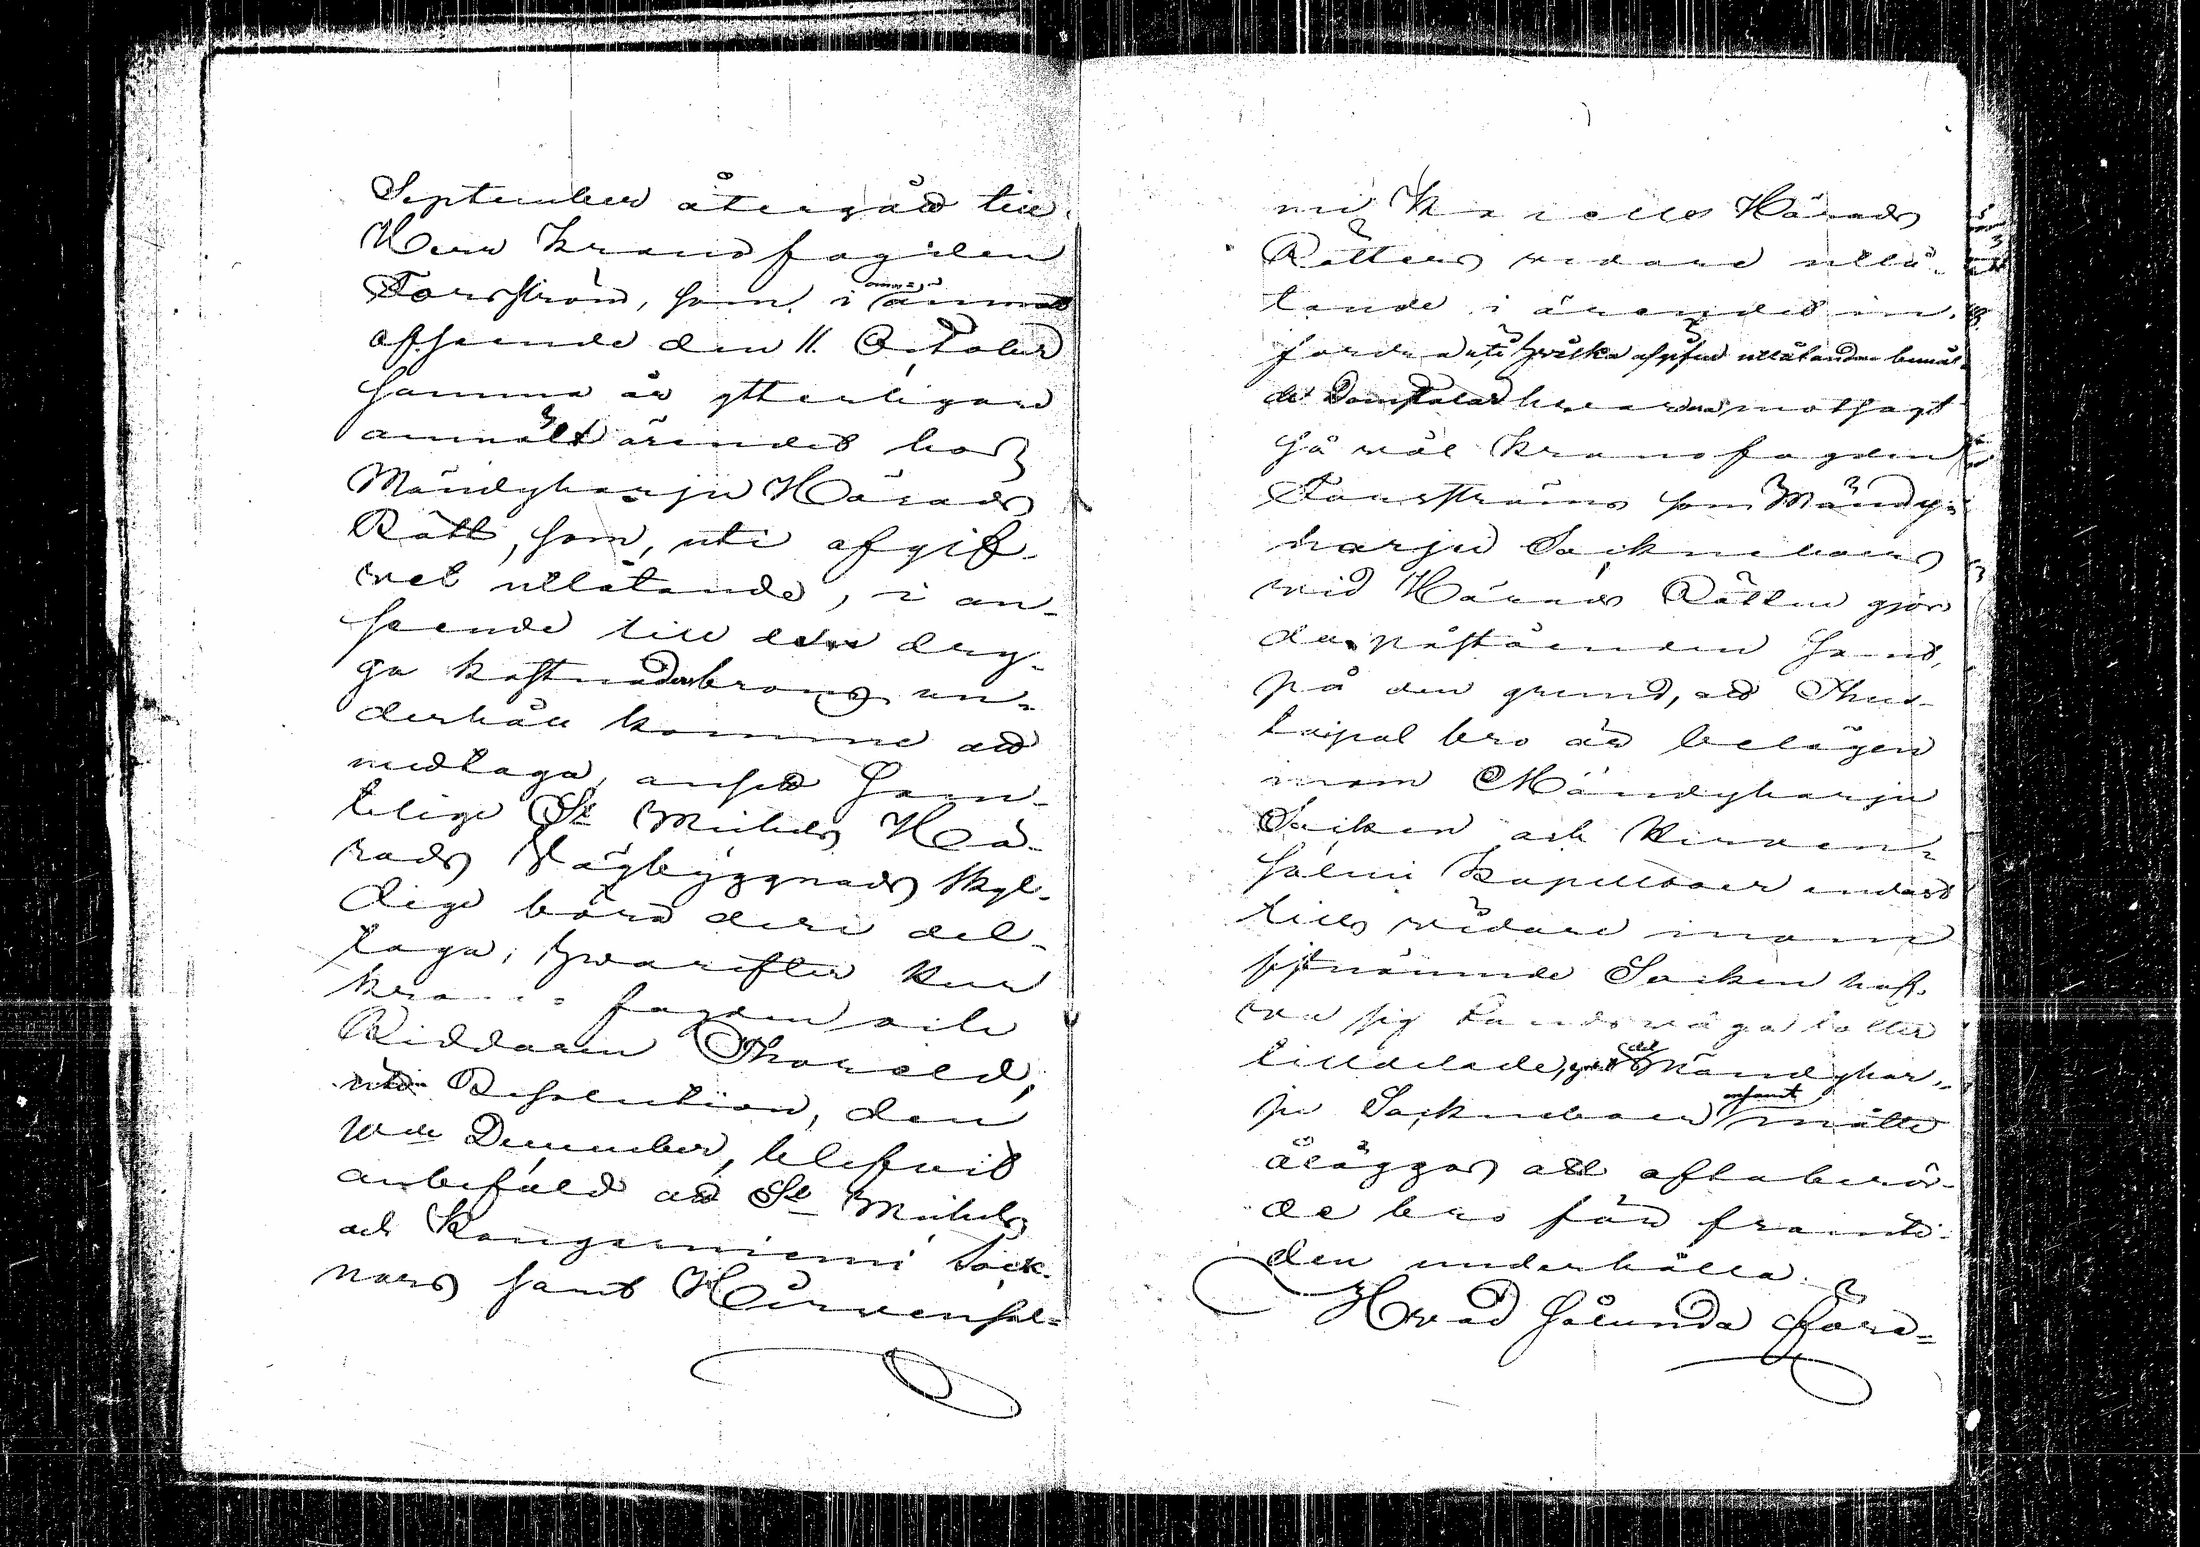 September återgåd till
Herr Kronofogden
Forsström, som, i ämnad
afseende den 11. October
samma år ytterligare
anmält ärendet hos
Mändyharju Härads
Rätt, som, uti afgif-
vet utlåtande, i an-
seende till den dry-
ga kostnaden brons un-
derhåll komme att
medtaga, ansed Sam-
telige St Michels Hä-
rads Vägbyggnads skyl-
dige böra deri del-
taga; hvarefter Herr
Krono fogden och
Riddaren Thorveld,
Resolution, den
10de December, blifvit
anbefald att St Michels
och Kangasniemi Sock-
nars samt Hirvensal-
mi Kapells Härads
Rättens vidare utlå-
tande i ärendet in-
fordra uti hvilka afgifne utlåtanden bemäl-
de Domstolar motsagt
så väl Kronofogden
Forsströms som Mändy-
harju Sockneboers
vid Härads Rätten gjor
da påståenden
på den grund, att
taipal bro är belägen
inom Mändyharju
Socken och Hirven-
salmi Kapellboer endast
tills vidare inom
sistnämnde Socken haft
sig Landsvägalotter
tilldelade, Mändyhar-
ju Sockneboer ensamt måtte
åläggas att oftaberör-
de bro för framti-
den underhålla.
Hvad sålunda före-